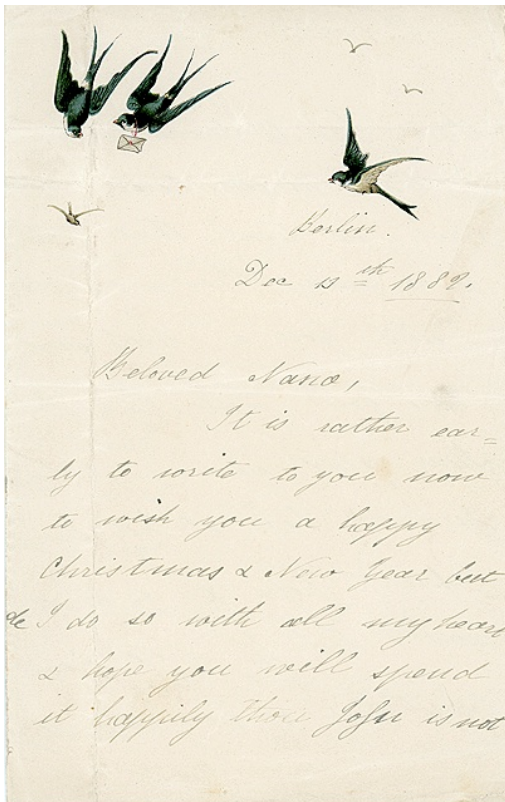 Berlin.
Dec 13th 1889.
Beloved Nana,
It is rather ear=
ly to write to you now
to wish you a happy
Christmas & New Year but
I do so with all my heart
& hope you will spend
it happily thou John is not